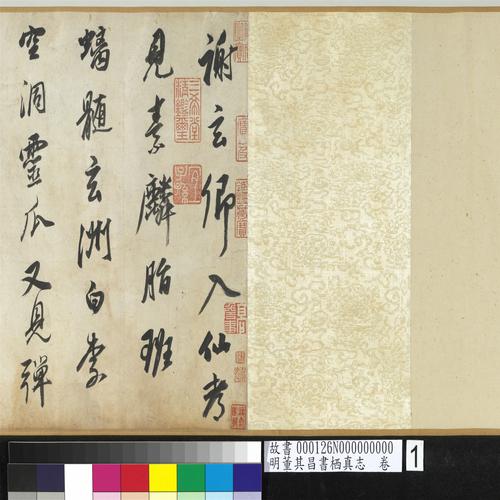 謝玄卿入仙考
見素麟脂班
螭髓玄洲白李
空洞靈瓜又見彈
三希堂精鑑璽
宜子孫
故書 000126N000000000
明董其昌書栖真志 卷
1